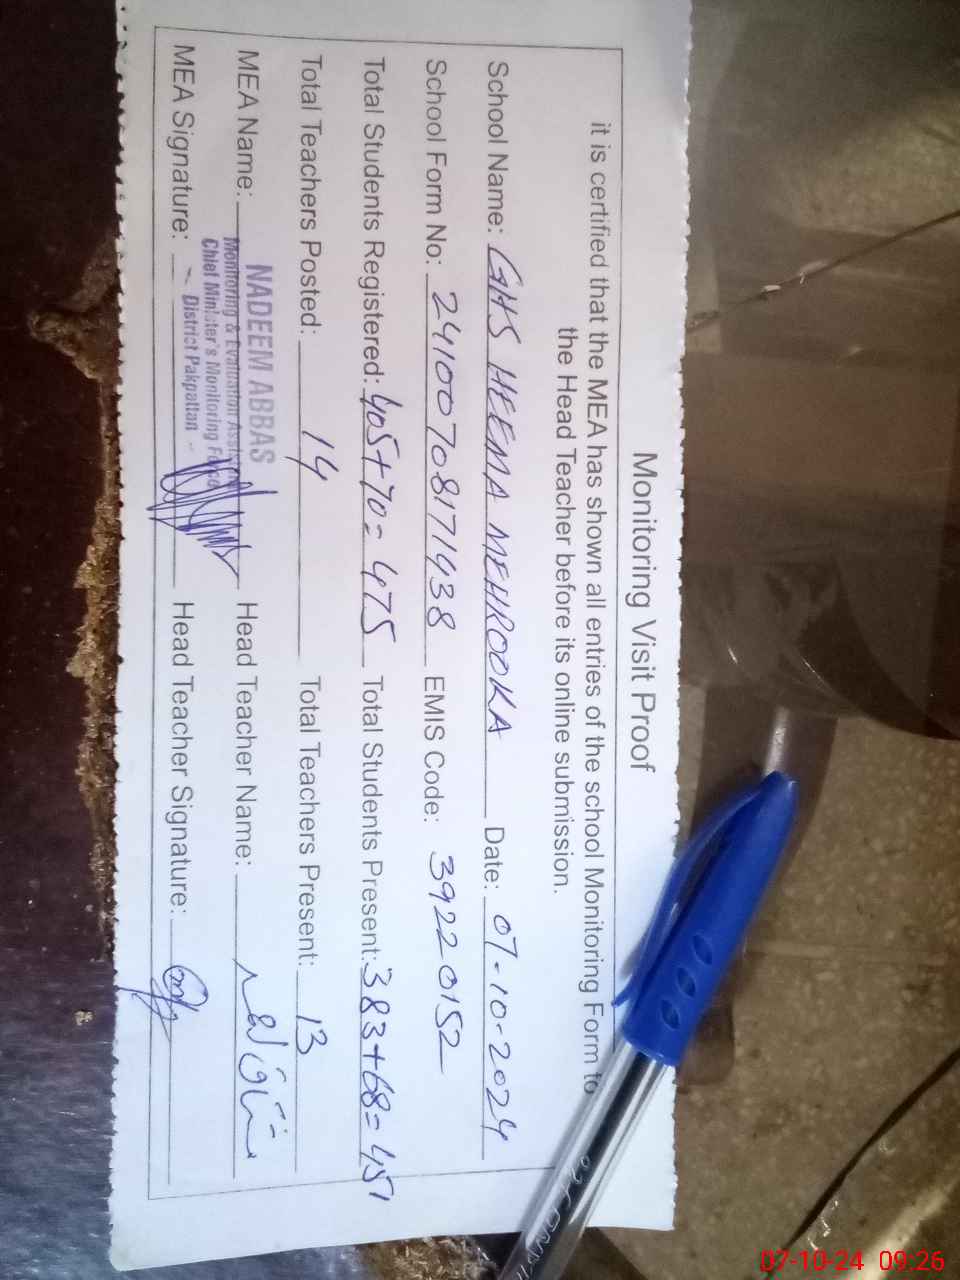 Monitoring Visit Proof
it is certified that the MEA has shown all entries of the school Monitoring Form to
the Head Teacher before its online submission.
School Name: GHS HEEMA MEHROOKA Date: 07-10-2024
School Form No: 24100708171438 EMIS Code: 39220152
Total Students Registered: 405+70= 475 Total Students Present: 383+68= 451
Total Teachers Posted: 14 Total Teachers Present: 13
MEA Name: NADEEM ABBAS Head Teacher Name:
Monitoring & Evaluation Assistant
Chief Minister's Monitoring Force
District Pakpattan
MEA Signature: Head Teacher Signature:
07-10-24 09:26